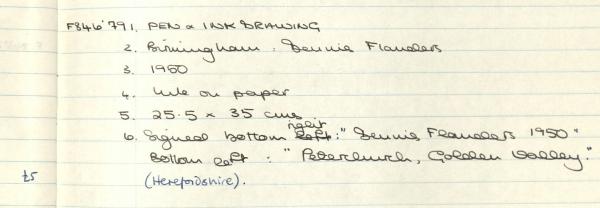 F846'791. PEN & INK DRAWING
2. Birmingham : Dennis Flanders
3. 1950
4. Ink on paper
5. 25.5 x 35 cms
6. Signed bottom left right : "Dennis Flanders 1950"
Bottom left : "Peterchurch, Golden Valley."
£5 (Herefordshire).